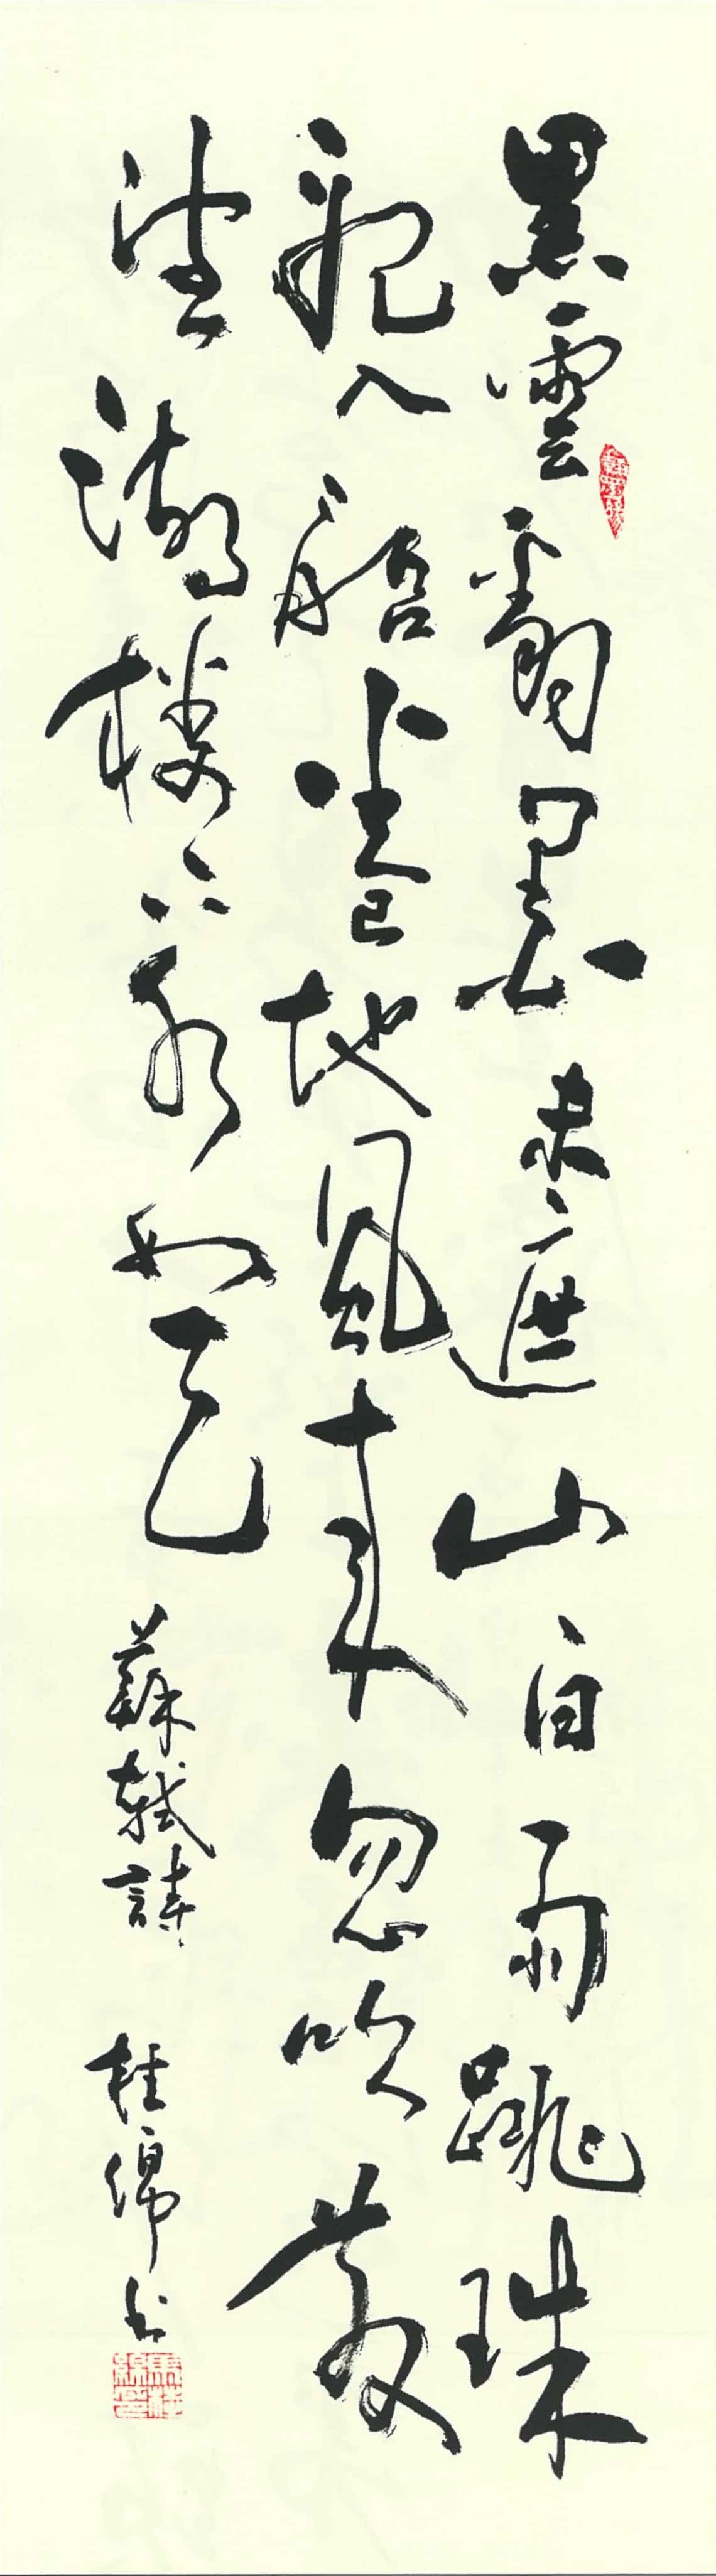 黑雲翻墨未遮山白雨跳珠
亂入船卷地風來忽吹散
望湖樓下水如天 蘇軾詩 桂綿书